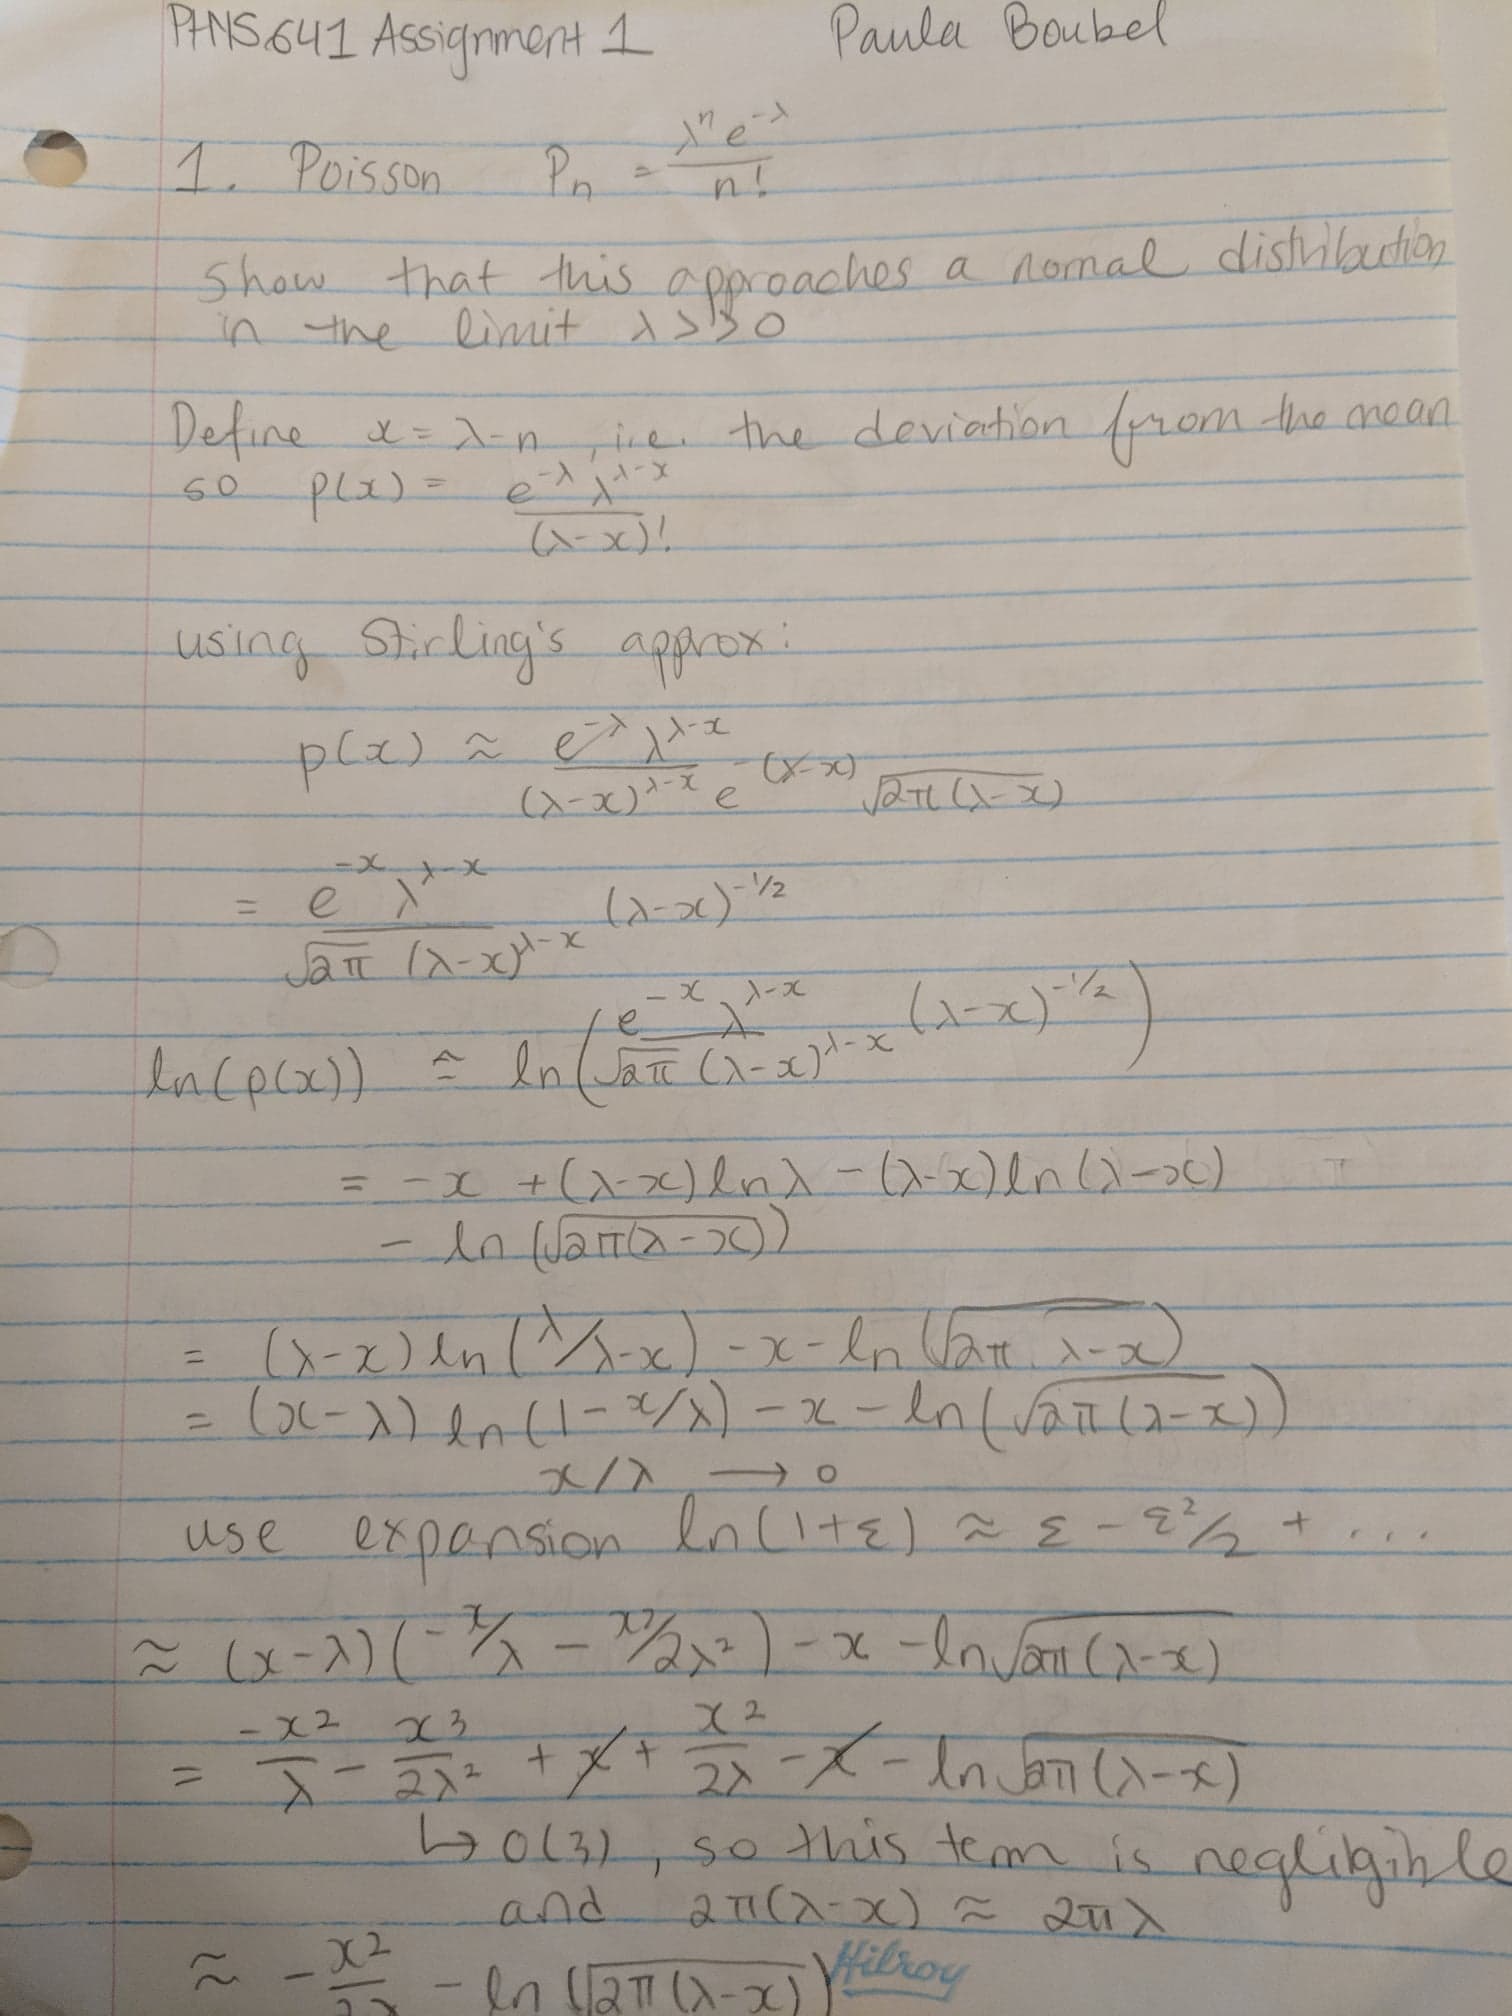 PHYS641 Assignment 1 Paula Boubel
1. Poisson Pn = λⁿe^-λ / n!
Show that this approaches a normal distribution
in the limit λ>>0
Define x = λ-n, i.e. the deviation from the mean
so p(x) = e^-λ λ^λ-x / (λ-x)!
using Stirling's approx:
p(x) ≈ e^-λ λ^λ-x / (λ-x)^λ-x e^-(λ-x) √2π(λ-x)
= e^-x λ^λ-x / √2π (λ-x)^λ-x (λ-x)^-1/2
ln(p(x)) ≈ ln(e^-x λ^λ-x / √2π (λ-x)^λ-x (λ-x)^-1/2)
= -x + (λ-x)lnλ - (λ-x)ln(λ-x)
- ln(√2π(λ-x))
= (λ-x)ln(λ/λ-x) - x - ln(√2π λ-x)
= (x-λ)ln(1-x/λ) - x - ln(√2π(λ-x))
x/λ → 0
use expansion ln(1+ε) ≈ ε - ε²/2 + ...
≈ (x-λ)(-x/λ - x²/2λ²) - x - ln√2π(λ-x)
= -x²/λ - x³/2λ² + x + x²/2λ - x - ln√2π(λ-x)
↳ O(3), so this term is negligible
and 2π(λ-x) ≈ 2πλ
≈ -x²/2λ - ln(√2π(λ-x))
Hilroy